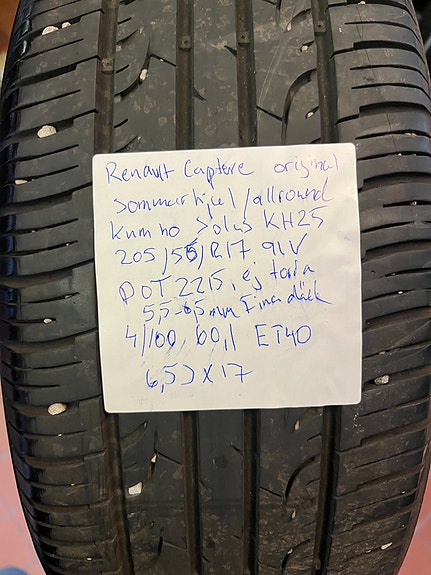 Renault Capture original
sommarhjul/allround
Kumho Solus KH25
205/55/R17 91V
DOT 2215, ej torra
5,5-6,5mm Fina däck
4/100, 60,1 ET40
6,5J x 17